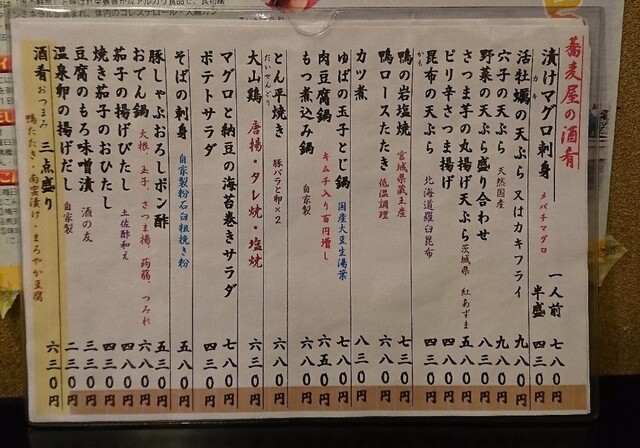 蕎麦屋の酒肴
漬けマグロ刺身 メバチマグロ 一人前 七八〇円
半盛 四三〇円
活牡蠣の天ぷら 又はカキフライ 九八〇円
カキ
穴子の天ぷら 天然国産 九八〇円
野菜の天ぷら盛り合わせ 八三〇円
さつま芋の丸揚げ天ぷら 茨城県 紅あずま 五八〇円
ピリ辛さつま揚げ 四八〇円
昆布の天ぷら 北海道羅臼昆布 四三〇円
鴨の岩塩焼 宮城県蔵王産 七三〇円
かも
鴨ロースたたき 低温調理 六八〇円
カツ煮 八三〇円
ゆばの玉子とじ鍋 国産大豆生湯葉 七八〇円
肉豆腐鍋 キムチ入り百円増し 六五〇円
もつ煮込み鍋 自家製 六三〇円
とん平焼き 豚バラと卵×2 六八〇円
大山鶏 唐揚・タレ焼・塩焼 六三〇円
だいせんどり
マグロと納豆の海苔巻きサラダ 七八〇円
ポテトサラダ 四三〇円
そばの刺身 自家製粉石臼粗挽き粉 五八〇円
豚しゃぶおろしポン酢 五三〇円
おでん鍋 大根、玉子、さつま揚、蒟蒻、つみれ 六八〇円
茄子の揚げびたし 土佐酢和え 四八〇円
焼き茄子のおひたし 四三〇円
豆腐のもろ味噌漬 酒の友 三三〇円
温泉卵の揚げだし 自家製 二三〇円
酒肴 おつまみ 三点盛り 六三〇円
鴨たたき・南蛮漬け・まろやか豆腐